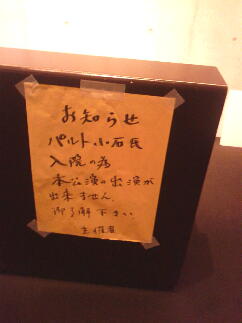 お知らせ
パルト小石氏
入院の為
本公演の出演が
出来ません
御了解下さい
主催者